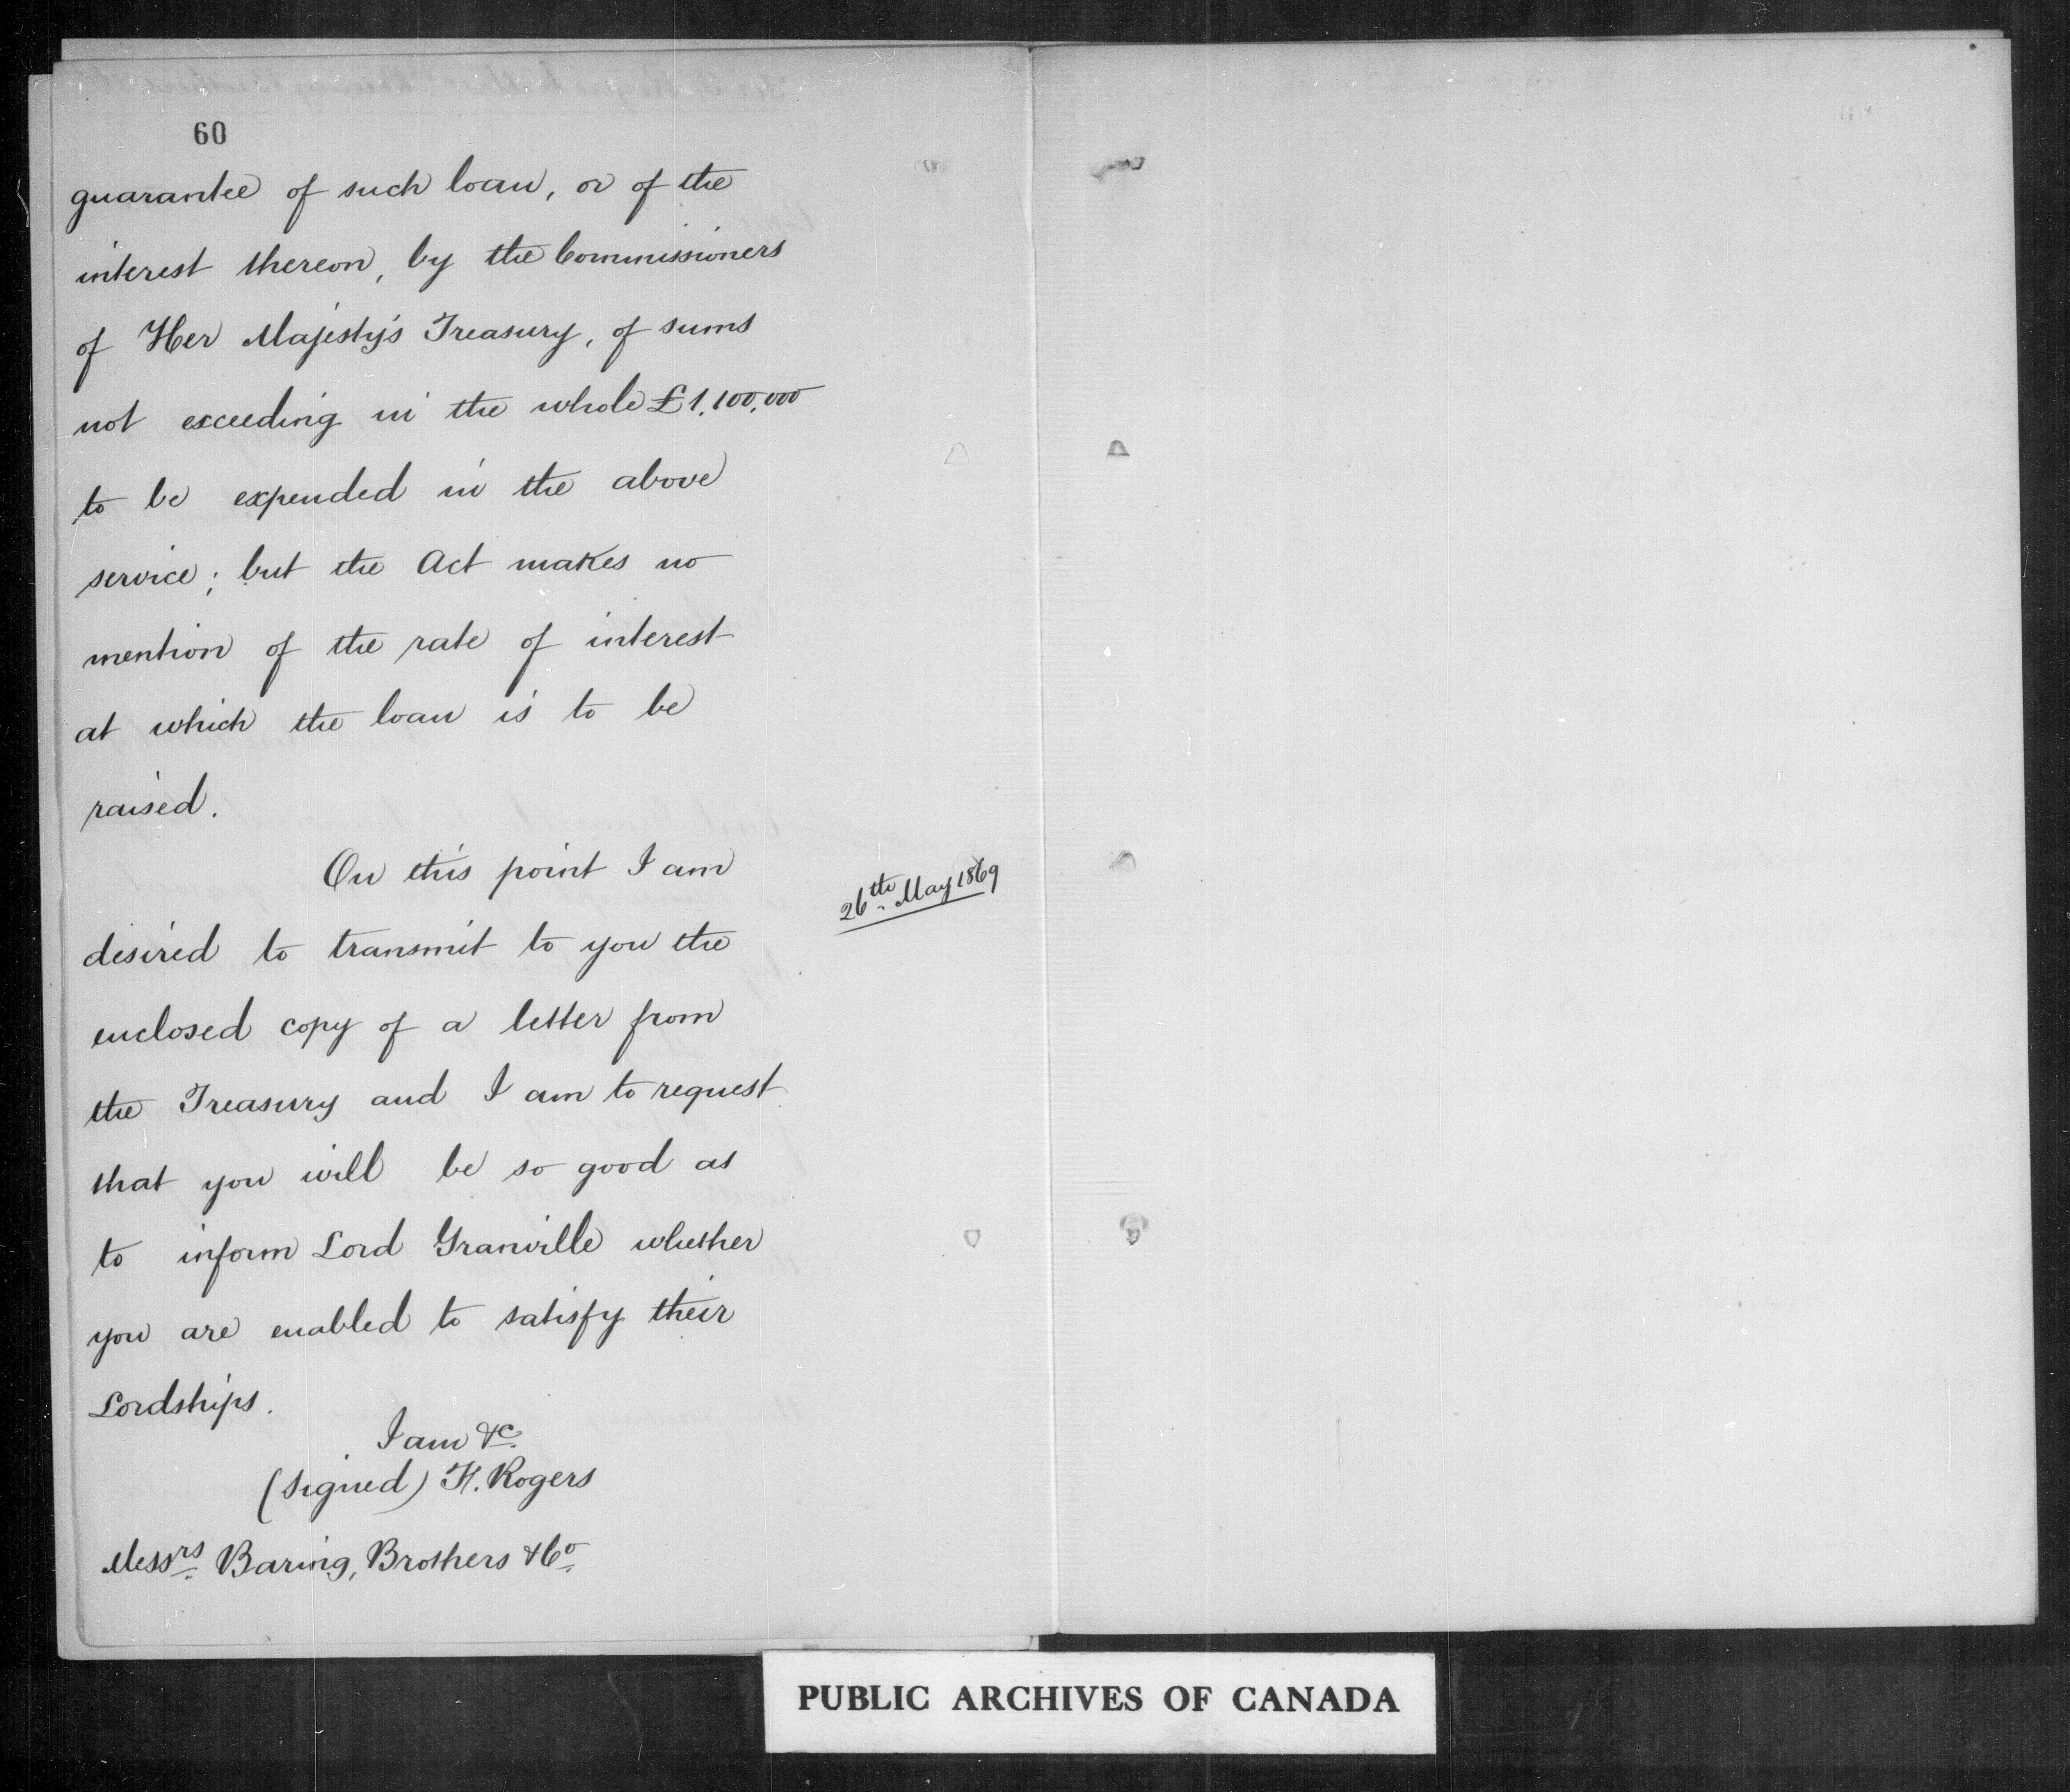 60
guarantee of such loan, or of the
interest thereon, by the Commissioners
of Her Majesty's Treasury, of sums
not exceeding in the whole £1,100,000
to be expended in the above
service; but the Act makes no
mention of the rate of interest
at which the loan is to be
raised.
On this point I am
26th May 1869
desired to transmit to you the
enclosed copy of a letter from
the Treasury and I am to request
that you will be so good as
to inform Lord Granville whether
you are enabled to satisfy their
Lordships.
I am &c.
(signed) F. Rogers
Messrs Baring, Brothers & Co.
PUBLIC ARCHIVES OF CANADA